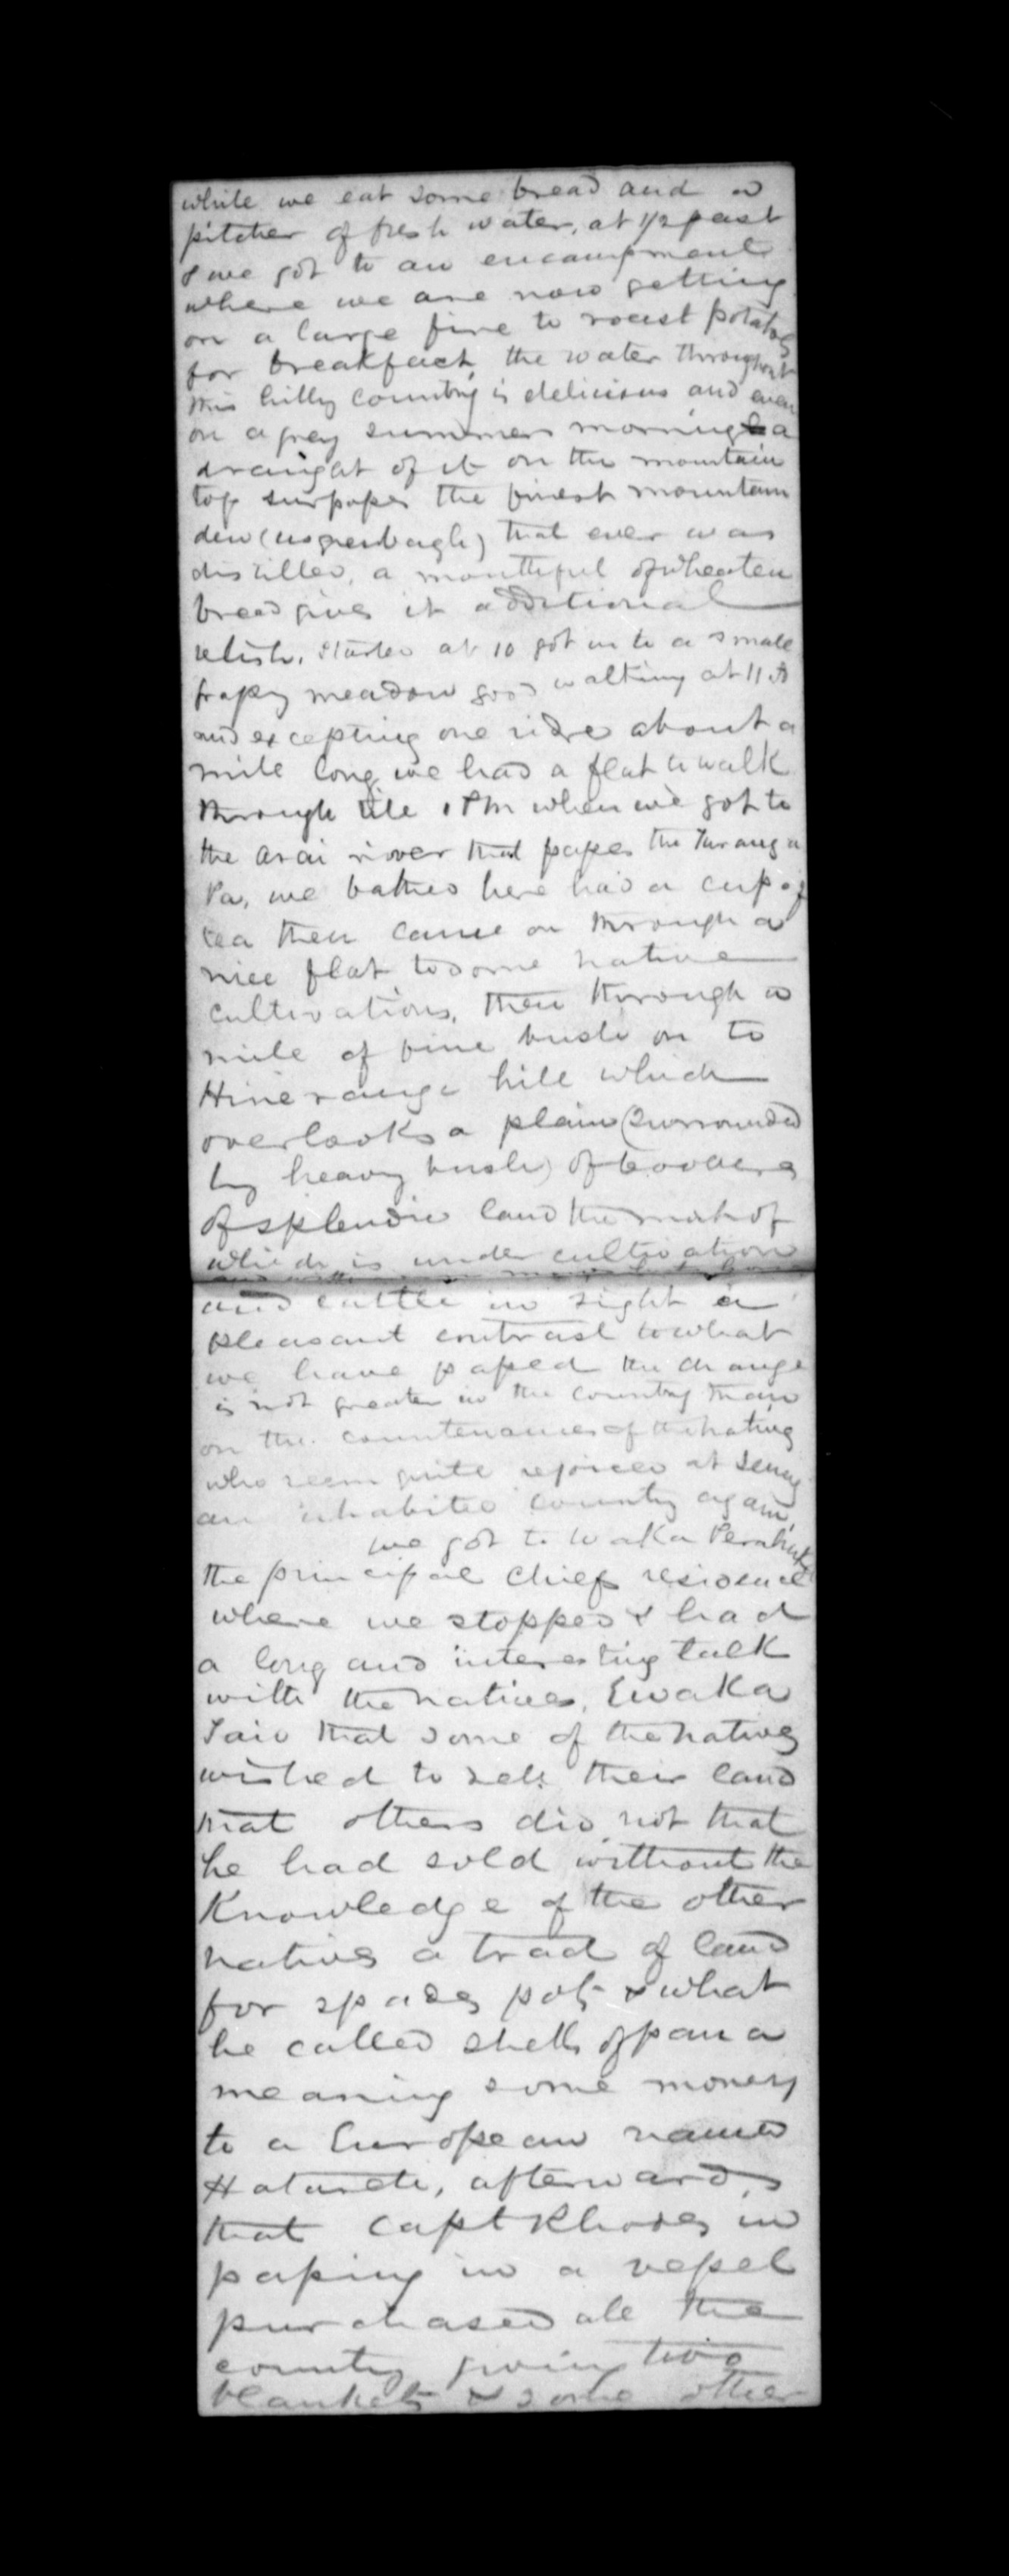 while we eat some bread and a
pitcher of fresh water, at 1/2 past
8 we got to an encampment
where we are now getting
on a large fire to roast potatoes
for breakfast, the water throughout
this hilly country is delicious and even
on a grey summers morning a
draught of it on the mountain
top surpasses the finest mountain
dew (usquebagh) that ever was
distilled, a mouthful of wheaten
bread gives it additional
relish. Started at 10 got in to a small
grassy meadow good walking at 11
and excepting one ridge about a
mile long we had a flat to walk
through till 1 PM when we got to
the Arai river that passes the Turanga
Pa, we bathed here had a cup of
tea then came on through a
nice flat to some native
cultivations, then through a
mile of fine bush on to
Hinerangi hill which
overlooks a plain (surrounded
by heavy bush) of acres
of splendid land the most of
which is under cultivation
and cattle in sight a
pleasant contrast to what
we have passed the change
is not greater in the country than
on the countenances of the natives
who seem quite rejoiced at seeing
an inhabited country again,
we got to Waka Perahuka
the principal chiefs residence
where we stopped & had
a long and interesting talk
with the natives, Ewaka
said that some of the natives
wished to sell their land
that others did not that
he had sold without the
Knowledge of the other
natives a tract of land
for spades pots & what
he called shells of paua
meaning some money
to a European named
Hatarete, afterwards
that Capt Rhodes in
passing in a vessel
purchased all the
country giving two
blankets & some other